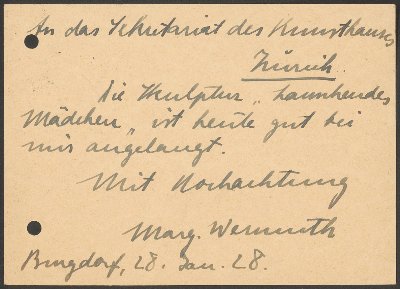 An das Sekretariat des Kunsthauses
Zürich.
Die Skulptur „ kauerndes
Mädchen „ ist heute gut bei
mir angelangt.
Mit Hochachtung
Marg. Wermuth
Burgdorf, 28. Jan. 28.